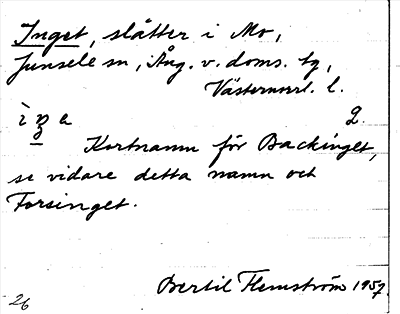 Inget, slåtter i Mo,
Junsele sn, Ång. v. doms. tg,
Västernorrl. l.
ì ŋ e 2.
Kortnamn för Backinget,
se vidare detta namn och
Forsinget.
Bertil Flemström 1957.
26